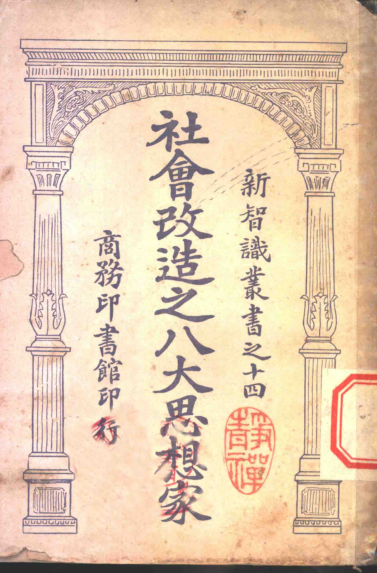 新智識叢書之十四
社會改造之八大思想家
商務印書館印行